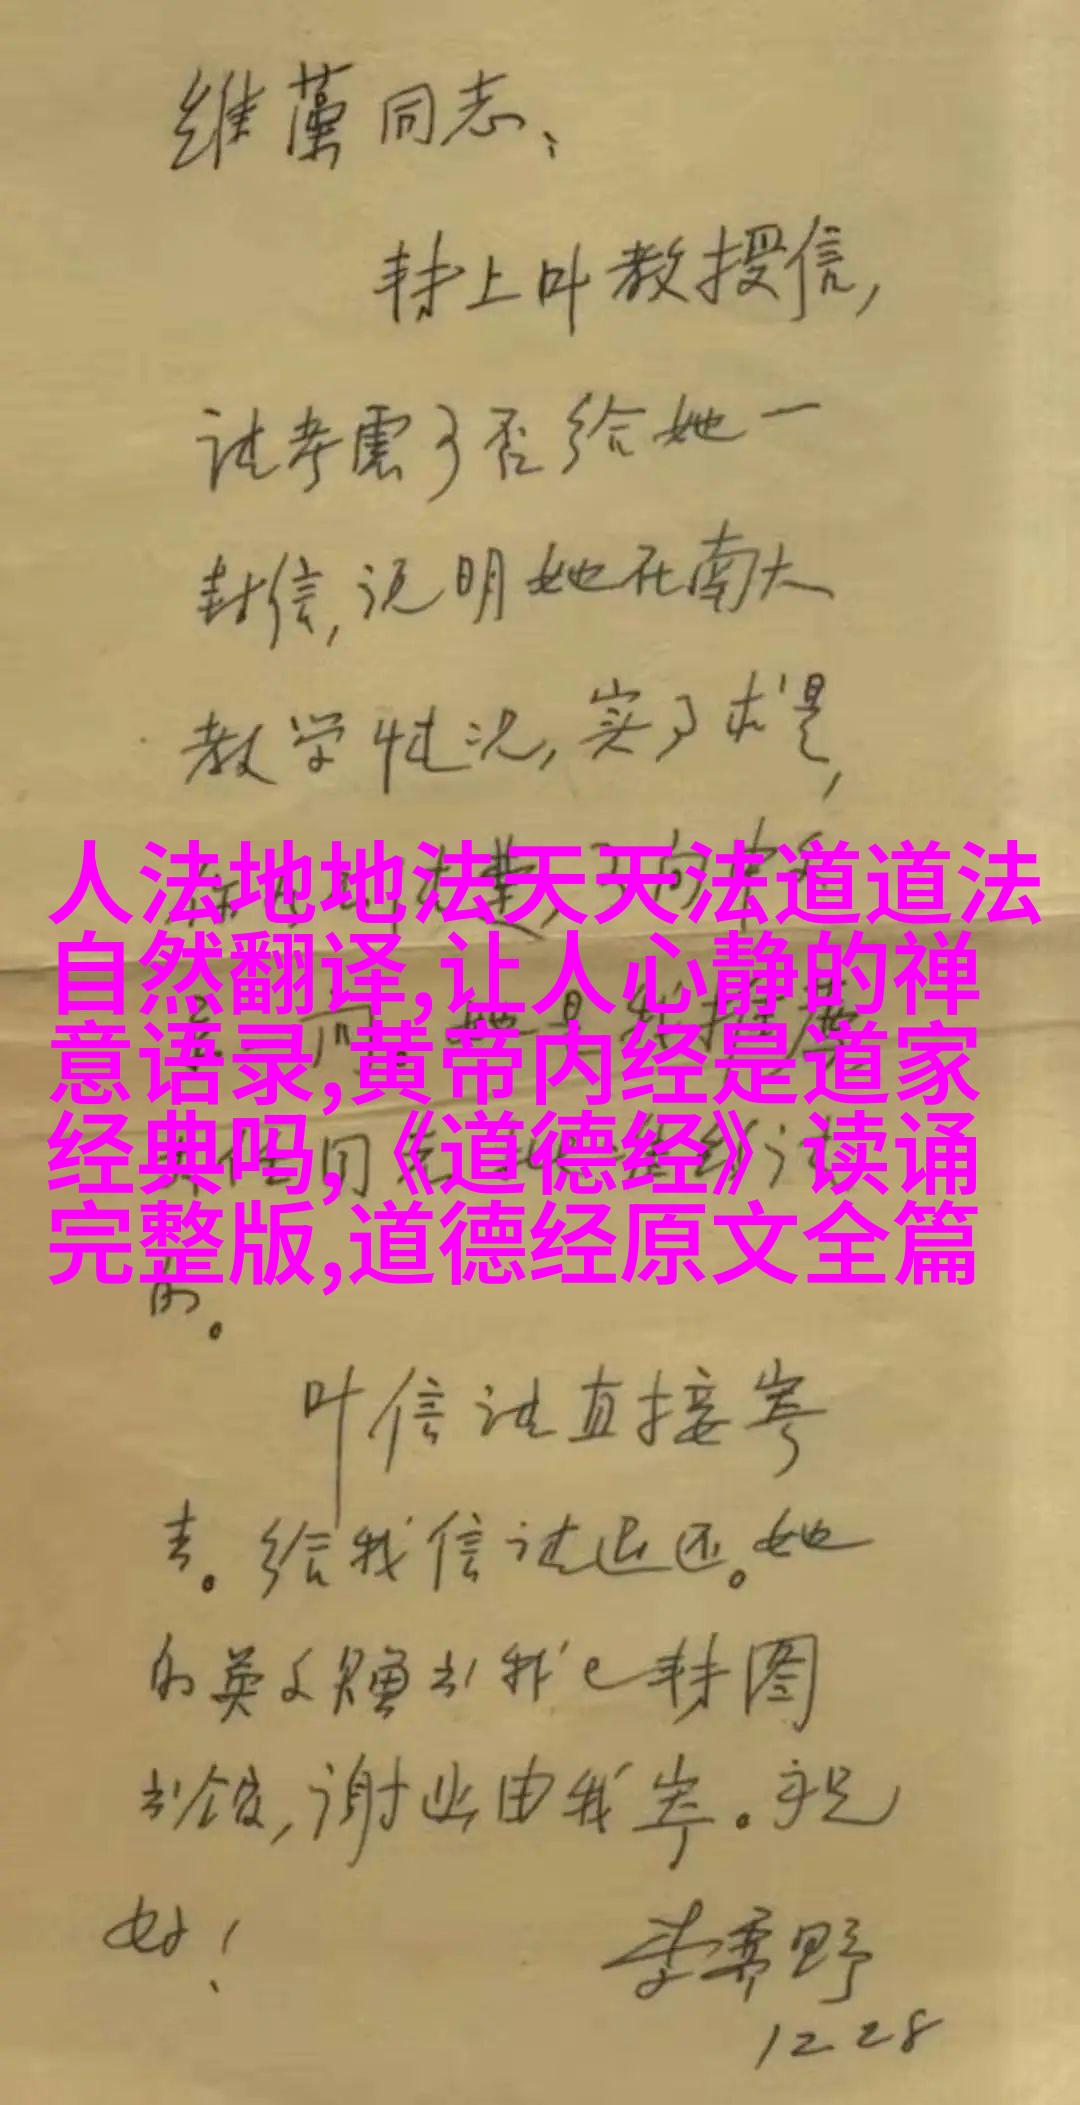 维藻同志、
转上叶教授信,
请考虑可否给她一
封信,说明她在南大
教学情况,实事求是,
人法地地法天天法道道法
自然翻译,让人心静的禅
意语录,黄帝内经是道家
经典吗,《道德经》读诵
完整版,道德经原文全篇
的。
叶信请直接寄
去。给我信请退还。她
的英文赠书我已转图
书馆,谢此由我寄。祝
好!
李霁野
12 28